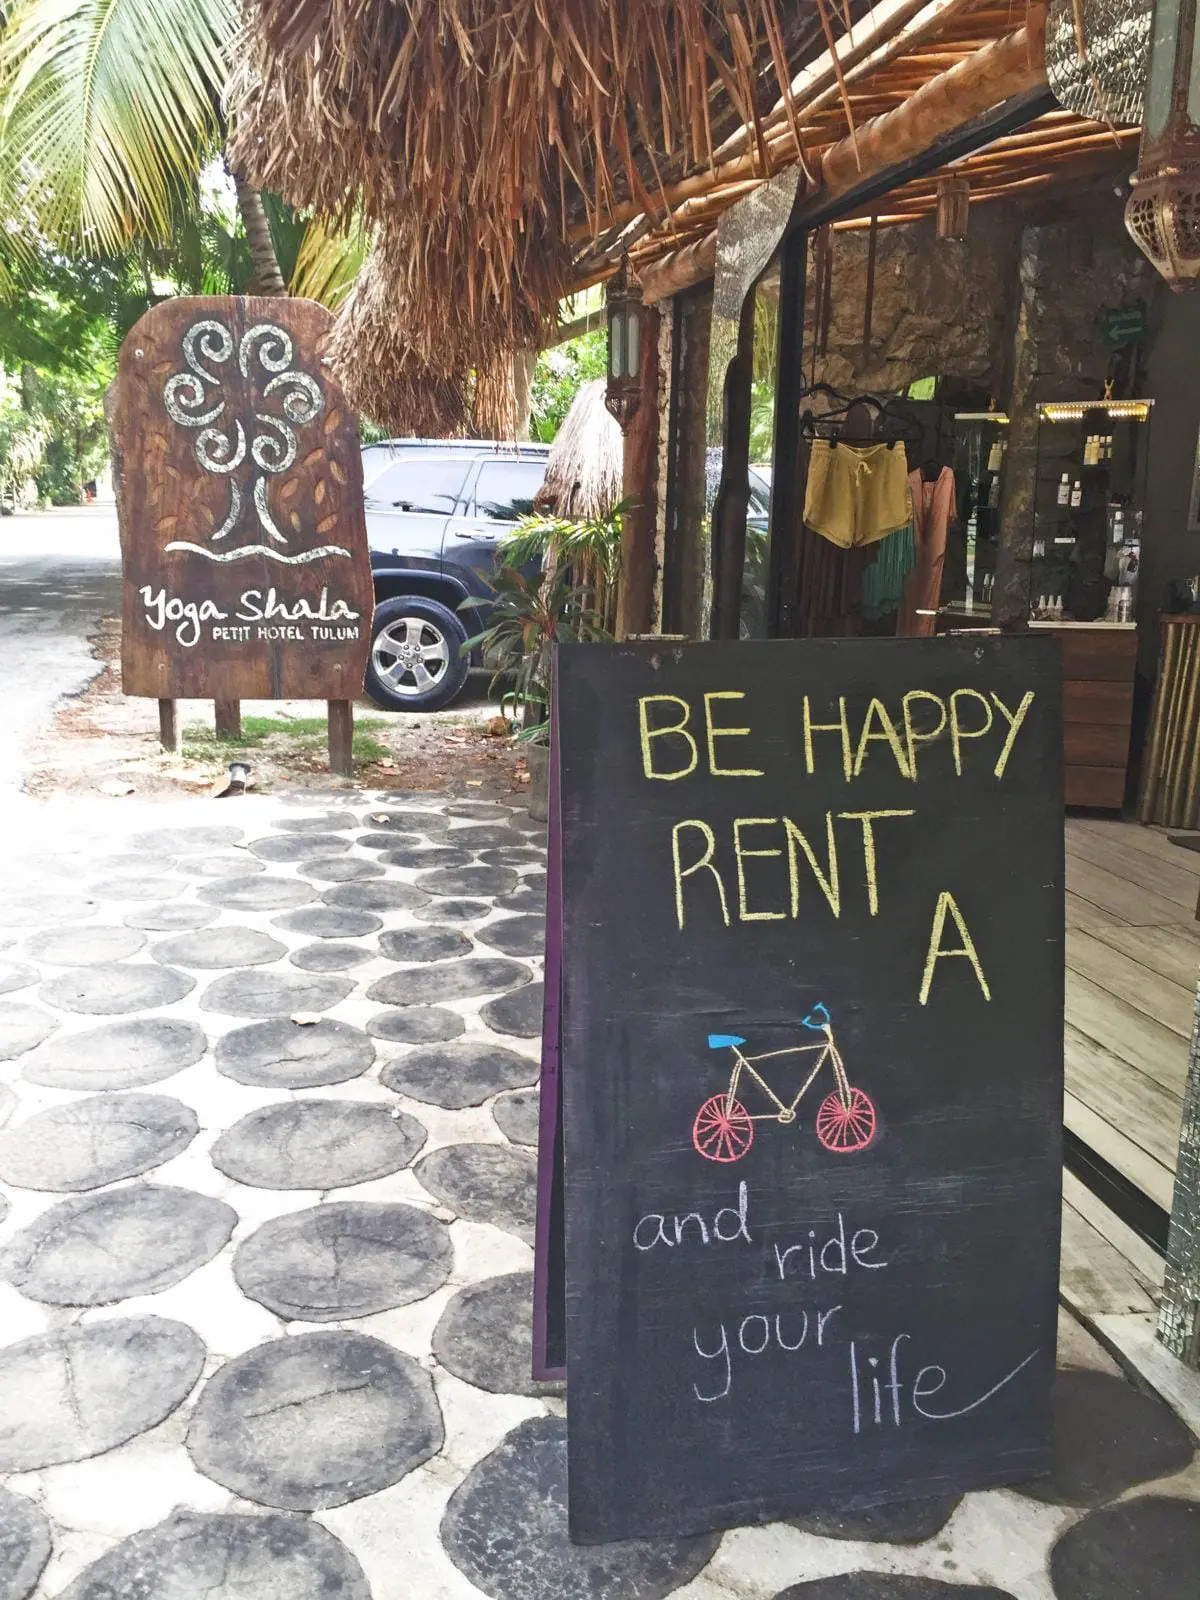 Yoga Shala
PETIT HOTEL TULUM
BE HAPPY
RENT
A
and
ride
your
life